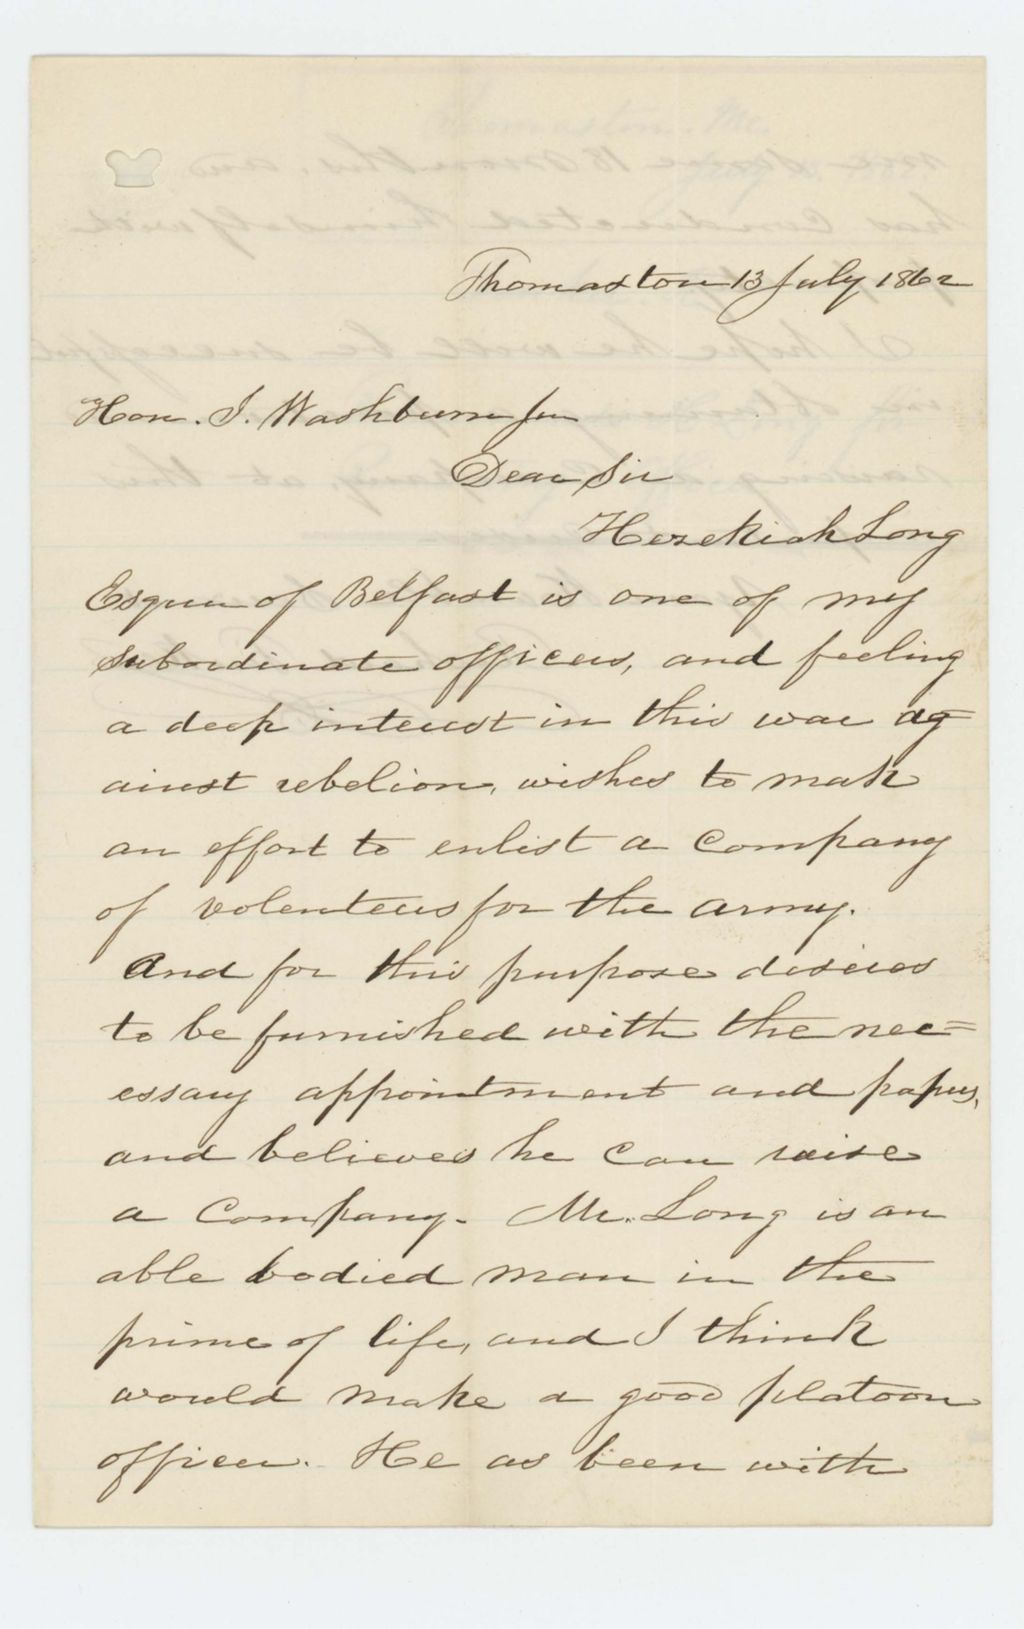 Thomaston 13 July 1862
Hon. I. Washburn Jun
Dear Sir
Hezekiah Long
Esquer of Belfast is one of my
subordinate officers, and feeling
a deep interest in this war ag=
ainst rebelion, wishes to make
an effort to enlist a Company
of volenteers for the army.
And for this purpose desires
to be furnished with the nec=
essary appointment and papers,
and believes he can raise
a Company. Mr. Long is an
able bodied man in the
prime of life, and I think
would make a good platoon
officer. He as been with